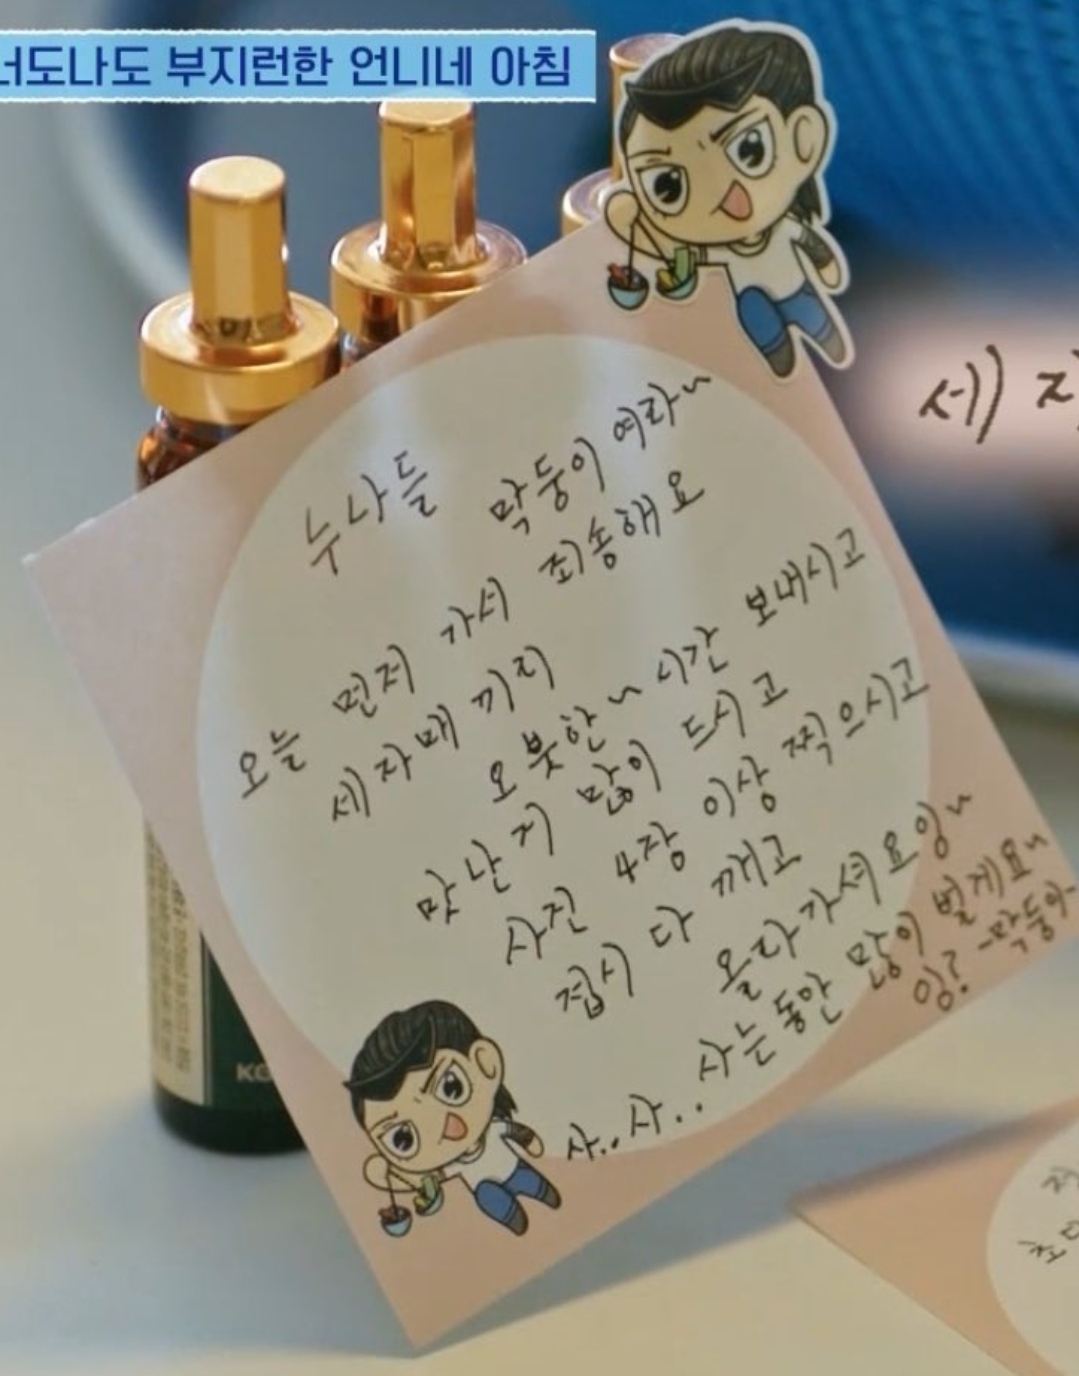 너도나도 부지런한 언니네 아침
누나들 막둥이 여라~
오늘 먼저 가서 죄송해요
세자매끼리
오붓한~ 시간 보내시고
맛난거 많이 드시고
사진 4장 이상 찍으시고
접시 다 깨고
올라가셔요잉~
사..사.. 사는동안 많이 벌게요~
잉? -막둥아-
세
KG